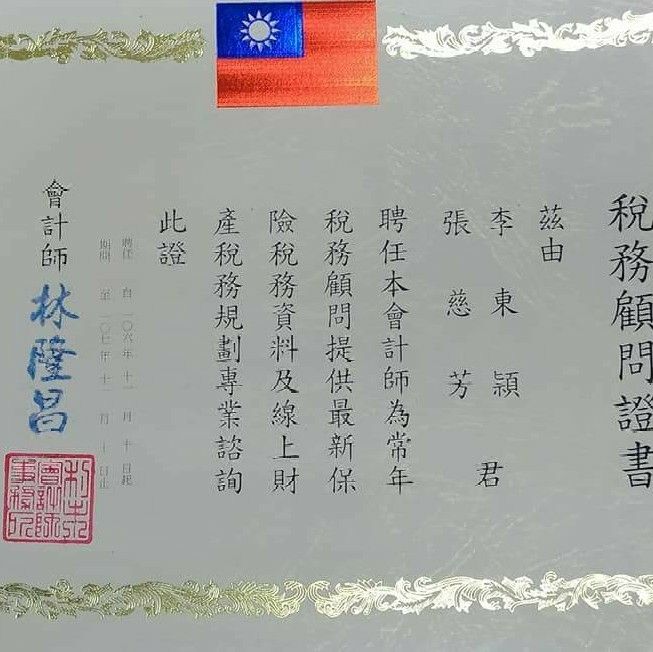 稅務顧問證書
茲由
李東穎
張慈芳
君
聘任本會計師為常年
稅務顧問提供最新保
險稅務資料及線上財
產稅務規劃專業諮詢
此證
聘任 自一〇六年十一月十日起
期間 至一〇七年十一月十日止
會計師 林隆昌